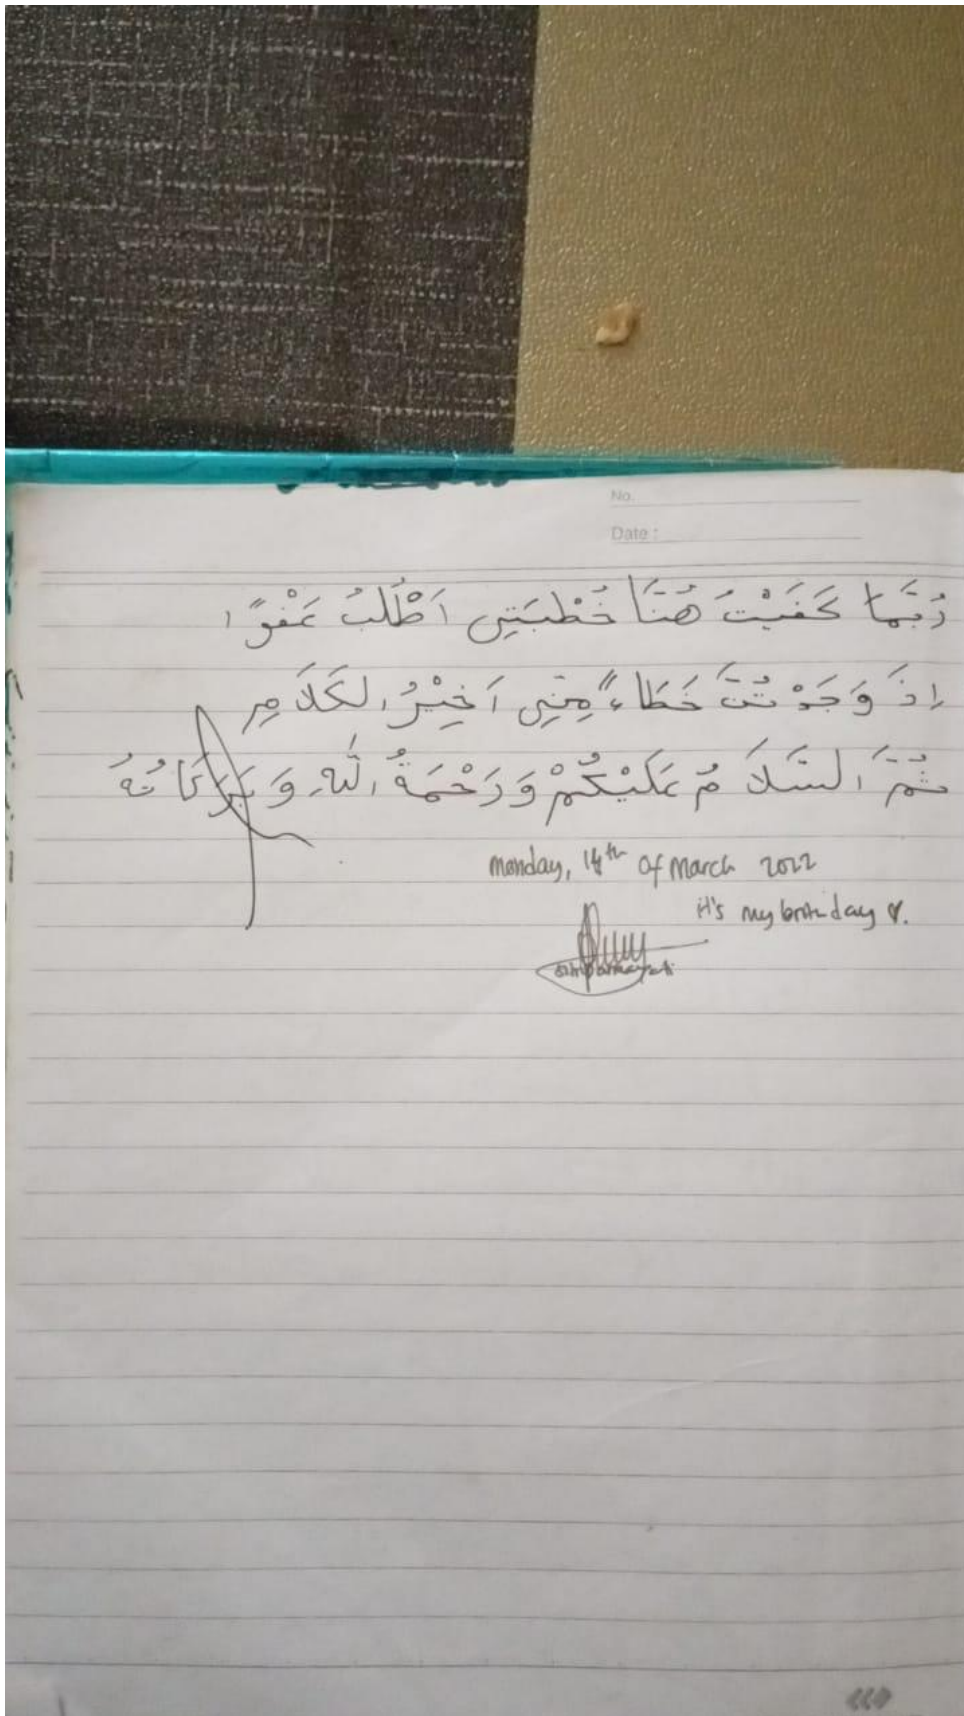 No.
Date :
رُبَّمَا كَفَيْتُ هُنَا خُطْبَتِي اَطْلُبُ عَفْوًا
اِذَ وَجَدْتُتَ خَطَاءً مِنِّي اَخِيْرُ الكَلَامِ
ثُمَّ السَّلَامُ عَلَيْكُمْ وَرَحْمَةُ اللّٰهِ وَبَرَكَاتُهُ
Monday, 14th of March 2022
it's my birthday